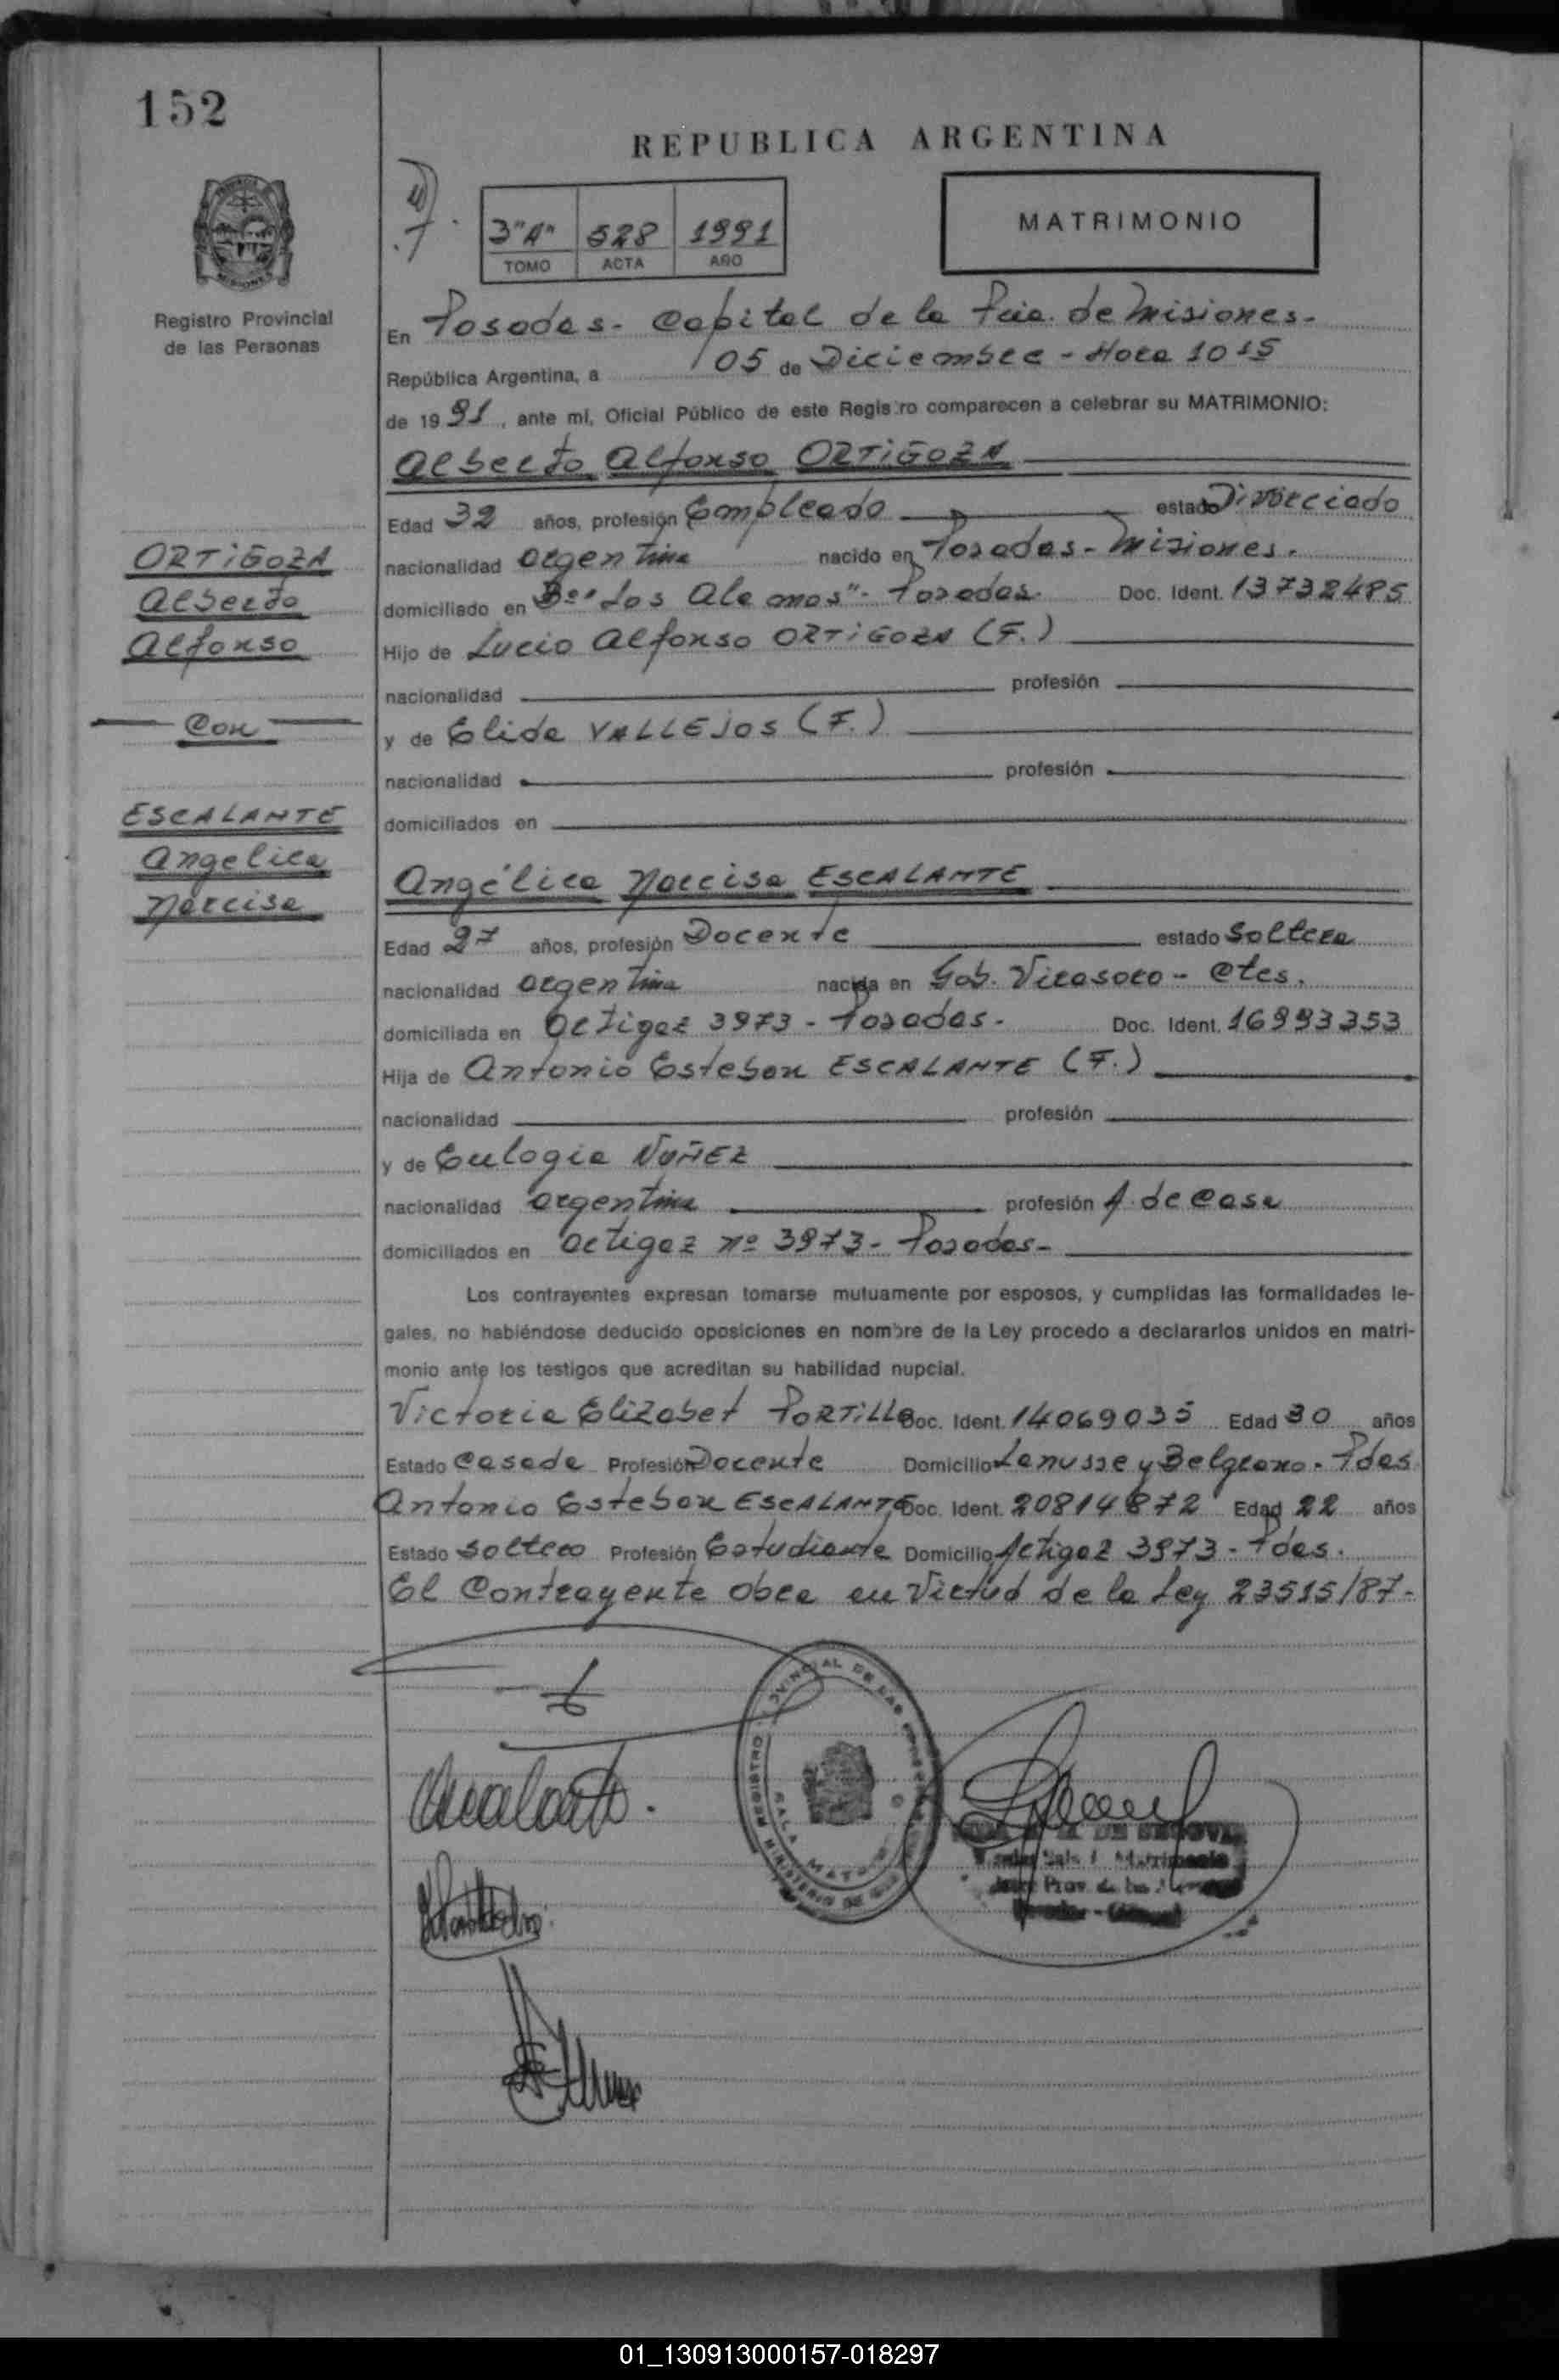 152
REPUBLICA ARGENTINA
3"A" 528 1991
TOMO ACTA AÑO
MATRIMONIO
Registro Provincial
de las Personas
En Posadas- Capital de la Pcia. de Misiones-
República Argentina, a 05 de Diciembre - Hora 10 15
de 19 91, ante mí, Oficial Público de este Registro comparecen a celebrar su MATRIMONIO:
Alberto Alfonso ORTIGOZA
Edad 32 años, profesión Empleado estado Divorciado
nacionalidad argentina nacido en Posadas- Misiones.
domiciliado en Bº "Los Alamos"- Posadas. Doc. Ident. 13732485
Hijo de Lucio Alfonso ORTIGOZA (F.)
nacionalidad profesión
y de Elida VALLEJOS (F.)
nacionalidad profesión
domiciliados en
ORTIGOZA
Alberto
Alfonso
Con
ESCALANTE
Angelica
Narcisa
Angélica Narcisa ESCALANTE
Edad 27 años, profesión Docente estado Soltera
nacionalidad argentina nacida en Gob. Virasoro - Ctes.
domiciliada en Artigaz 3973 - Posadas- Doc. Ident. 16993353
Hija de Antonio Esteban ESCALANTE (F.)
nacionalidad profesión
y de Eulogia NUÑEZ
nacionalidad argentina profesión A. de Casa
domiciliados en Artigaz Nº 3973- Posadas-
Los contrayentes expresan tomarse mutuamente por esposos, y cumplidas las formalidades le-
gales, no habiéndose deducido oposiciones en nombre de la Ley procedo a declararlos unidos en matri-
monio ante los testigos que acreditan su habilidad nupcial.
Victoria Elizabet PORTILLO Doc. Ident. 14069035 Edad 30 años
Estado Casada Profesión Docente Domicilio Lanusse y Belgrano. Pdas
Antonio Esteban ESCALANTE Doc. Ident. 20814872 Edad 22 años
Estado Soltero Profesión Estudiante Domicilio Artigaz 3973 - Pdas.
El Contrayente obra en Virtud de la Ley 23515/87-
DE SEGOVIA
01_130913000157-018297